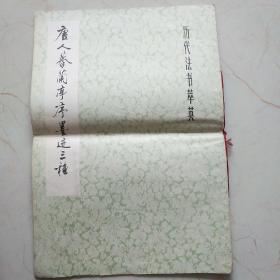 历代法书萃英
唐人摹兰亭序墨迹三种